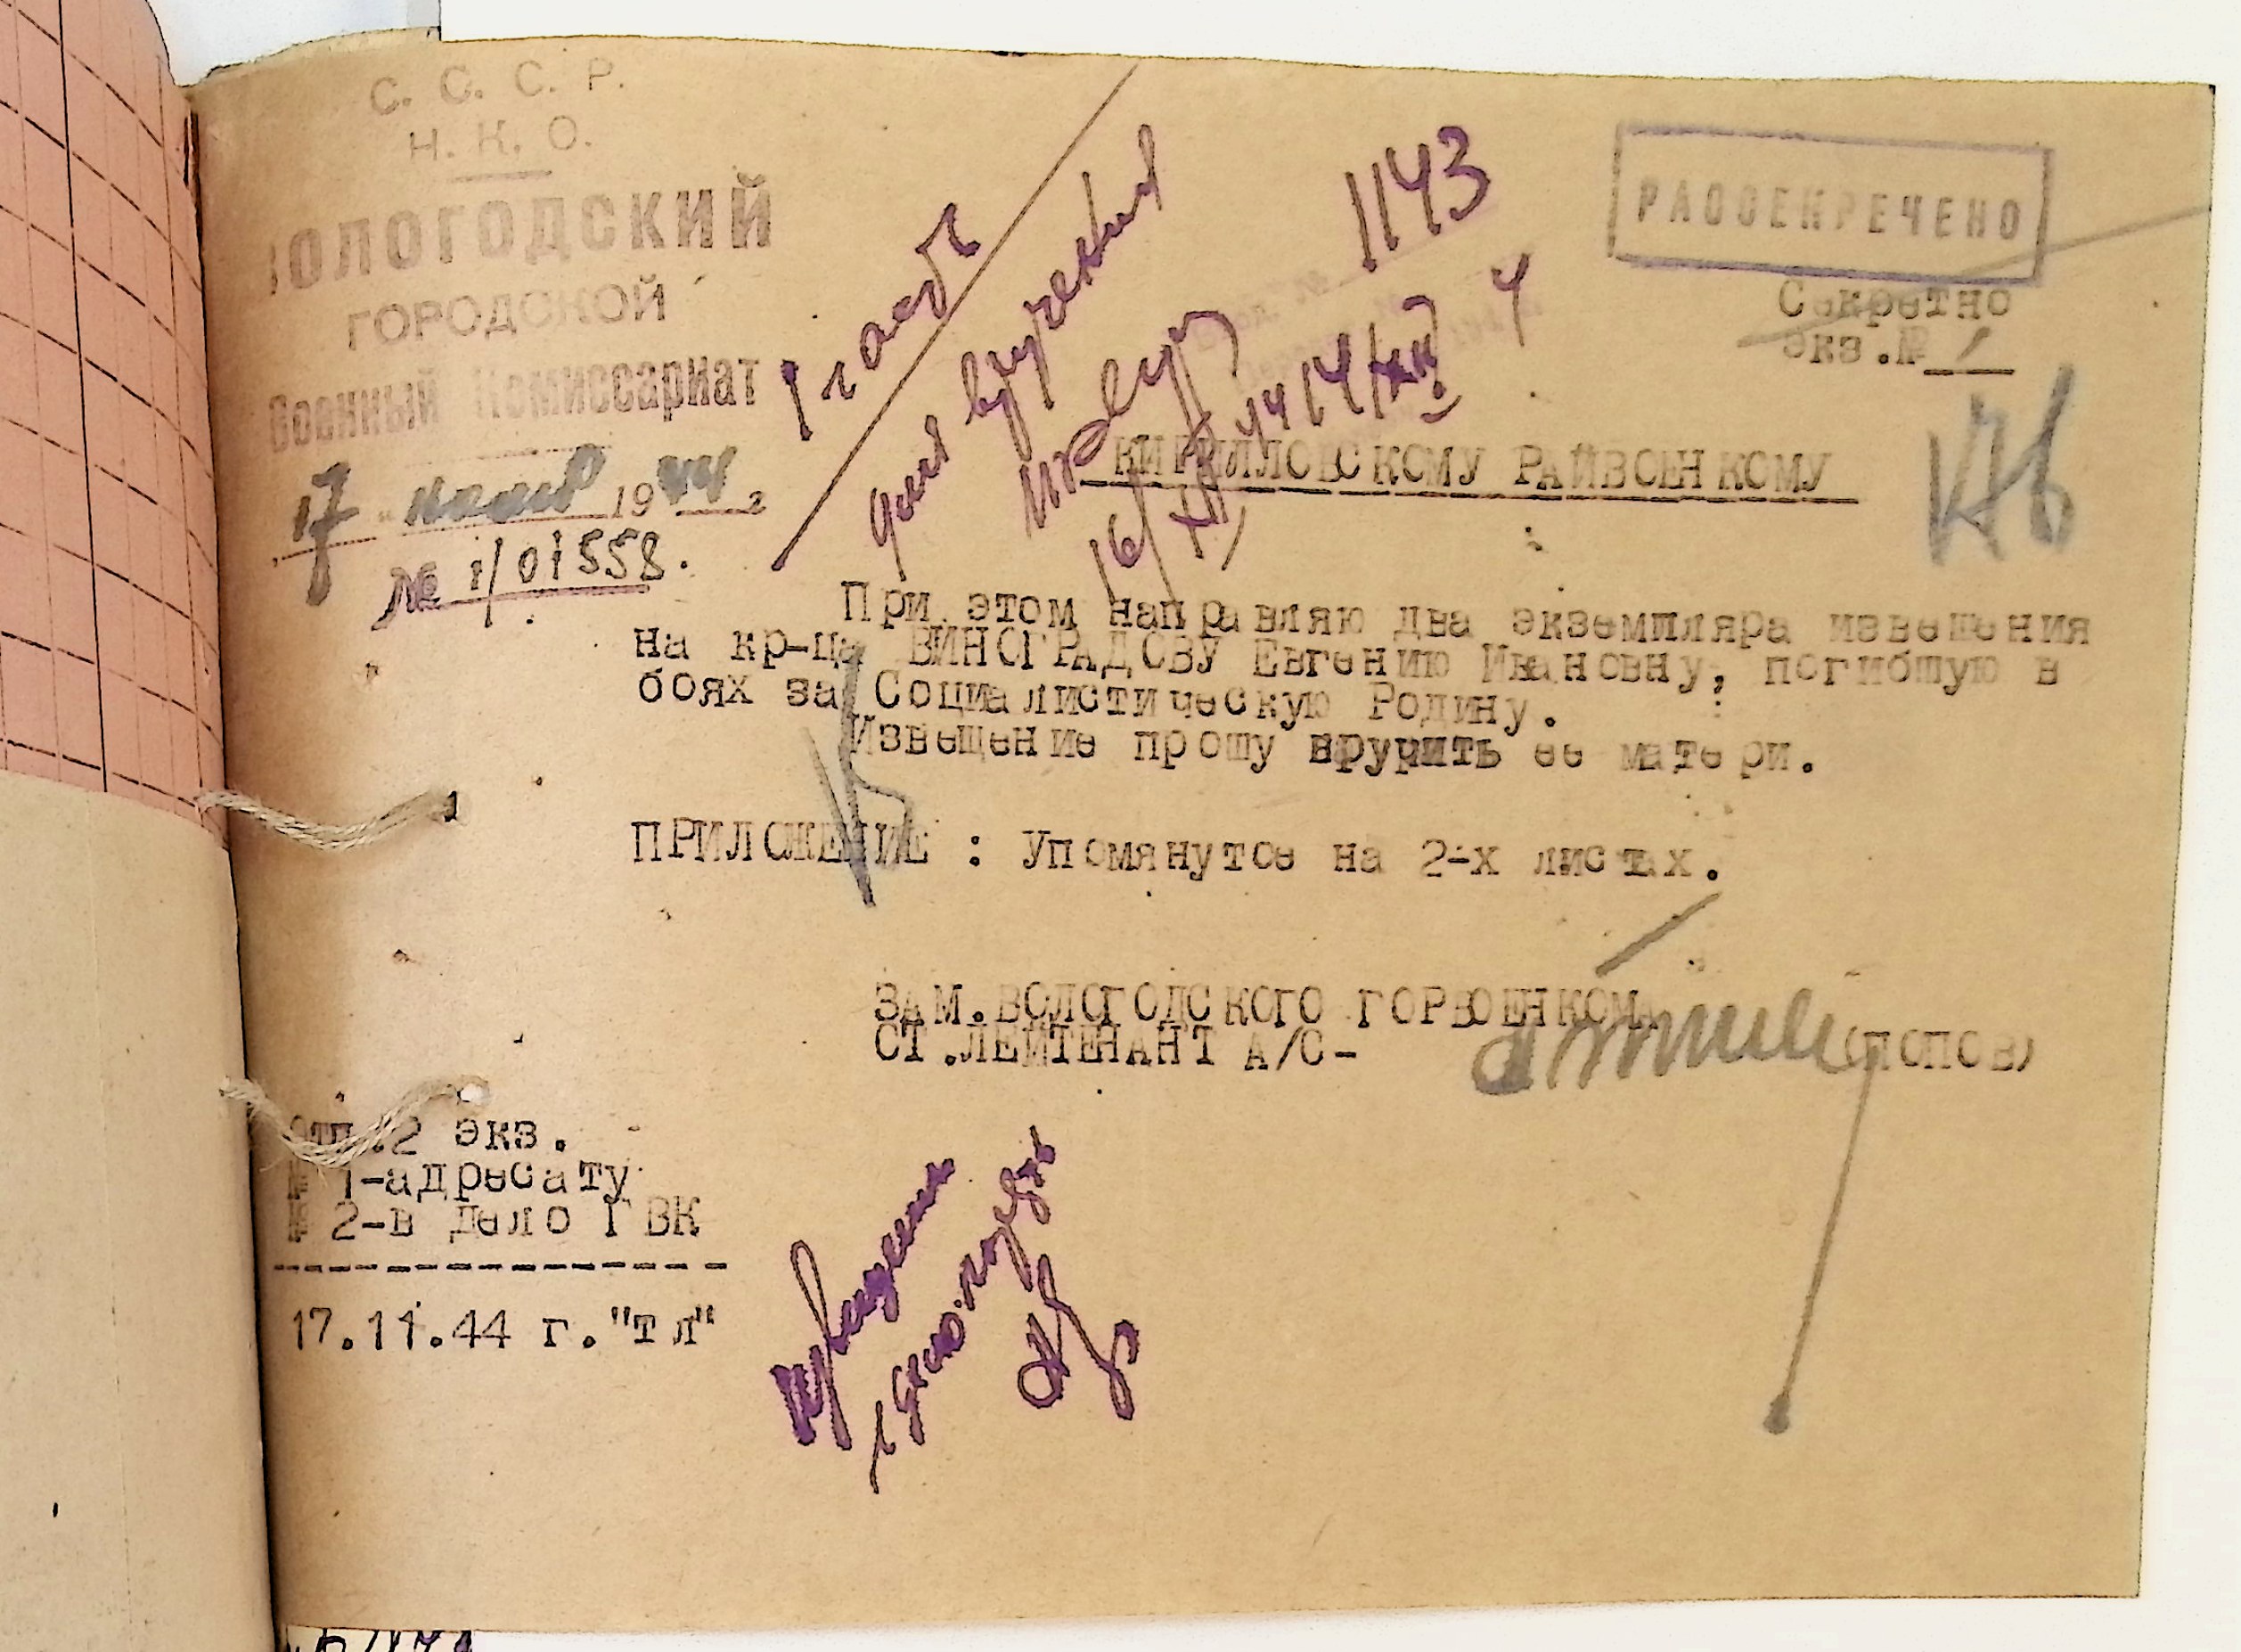 С. С. С. Р.
Н. К. О.
ВОЛОГОДСКИЙ
ГОРОДСКОЙ
Военный Комиссариат
17 " нояб 1944 г
№ 1/01558.
1143
РАССЕКРЕЧЕНО
Секретно
экз.№ 1
для вручения
16/XI
КИРИЛЛОВСКОМУ РАЙВОЕНКОМУ
При этом направляю два экземпляра извещения
на кр-ца ВИНОГРАДОВУ Евгению Ивановну, погибшую в
боях за Социалистическую Родину.
Извещение прошу вручить ее матери.
ПРИЛОЖЕНИЕ : Упомянутое на 2-х листах.
ЗАМ.ВОЛОГОДСКОГО ГОРВОЕНКОМА
СТ.ЛЕЙТЕНАНТ А/С- (ПОПОВ)
Отп.2 экз.
№ 1-адресату
№ 2-в дело ГВК
17.11.44 г."тл"